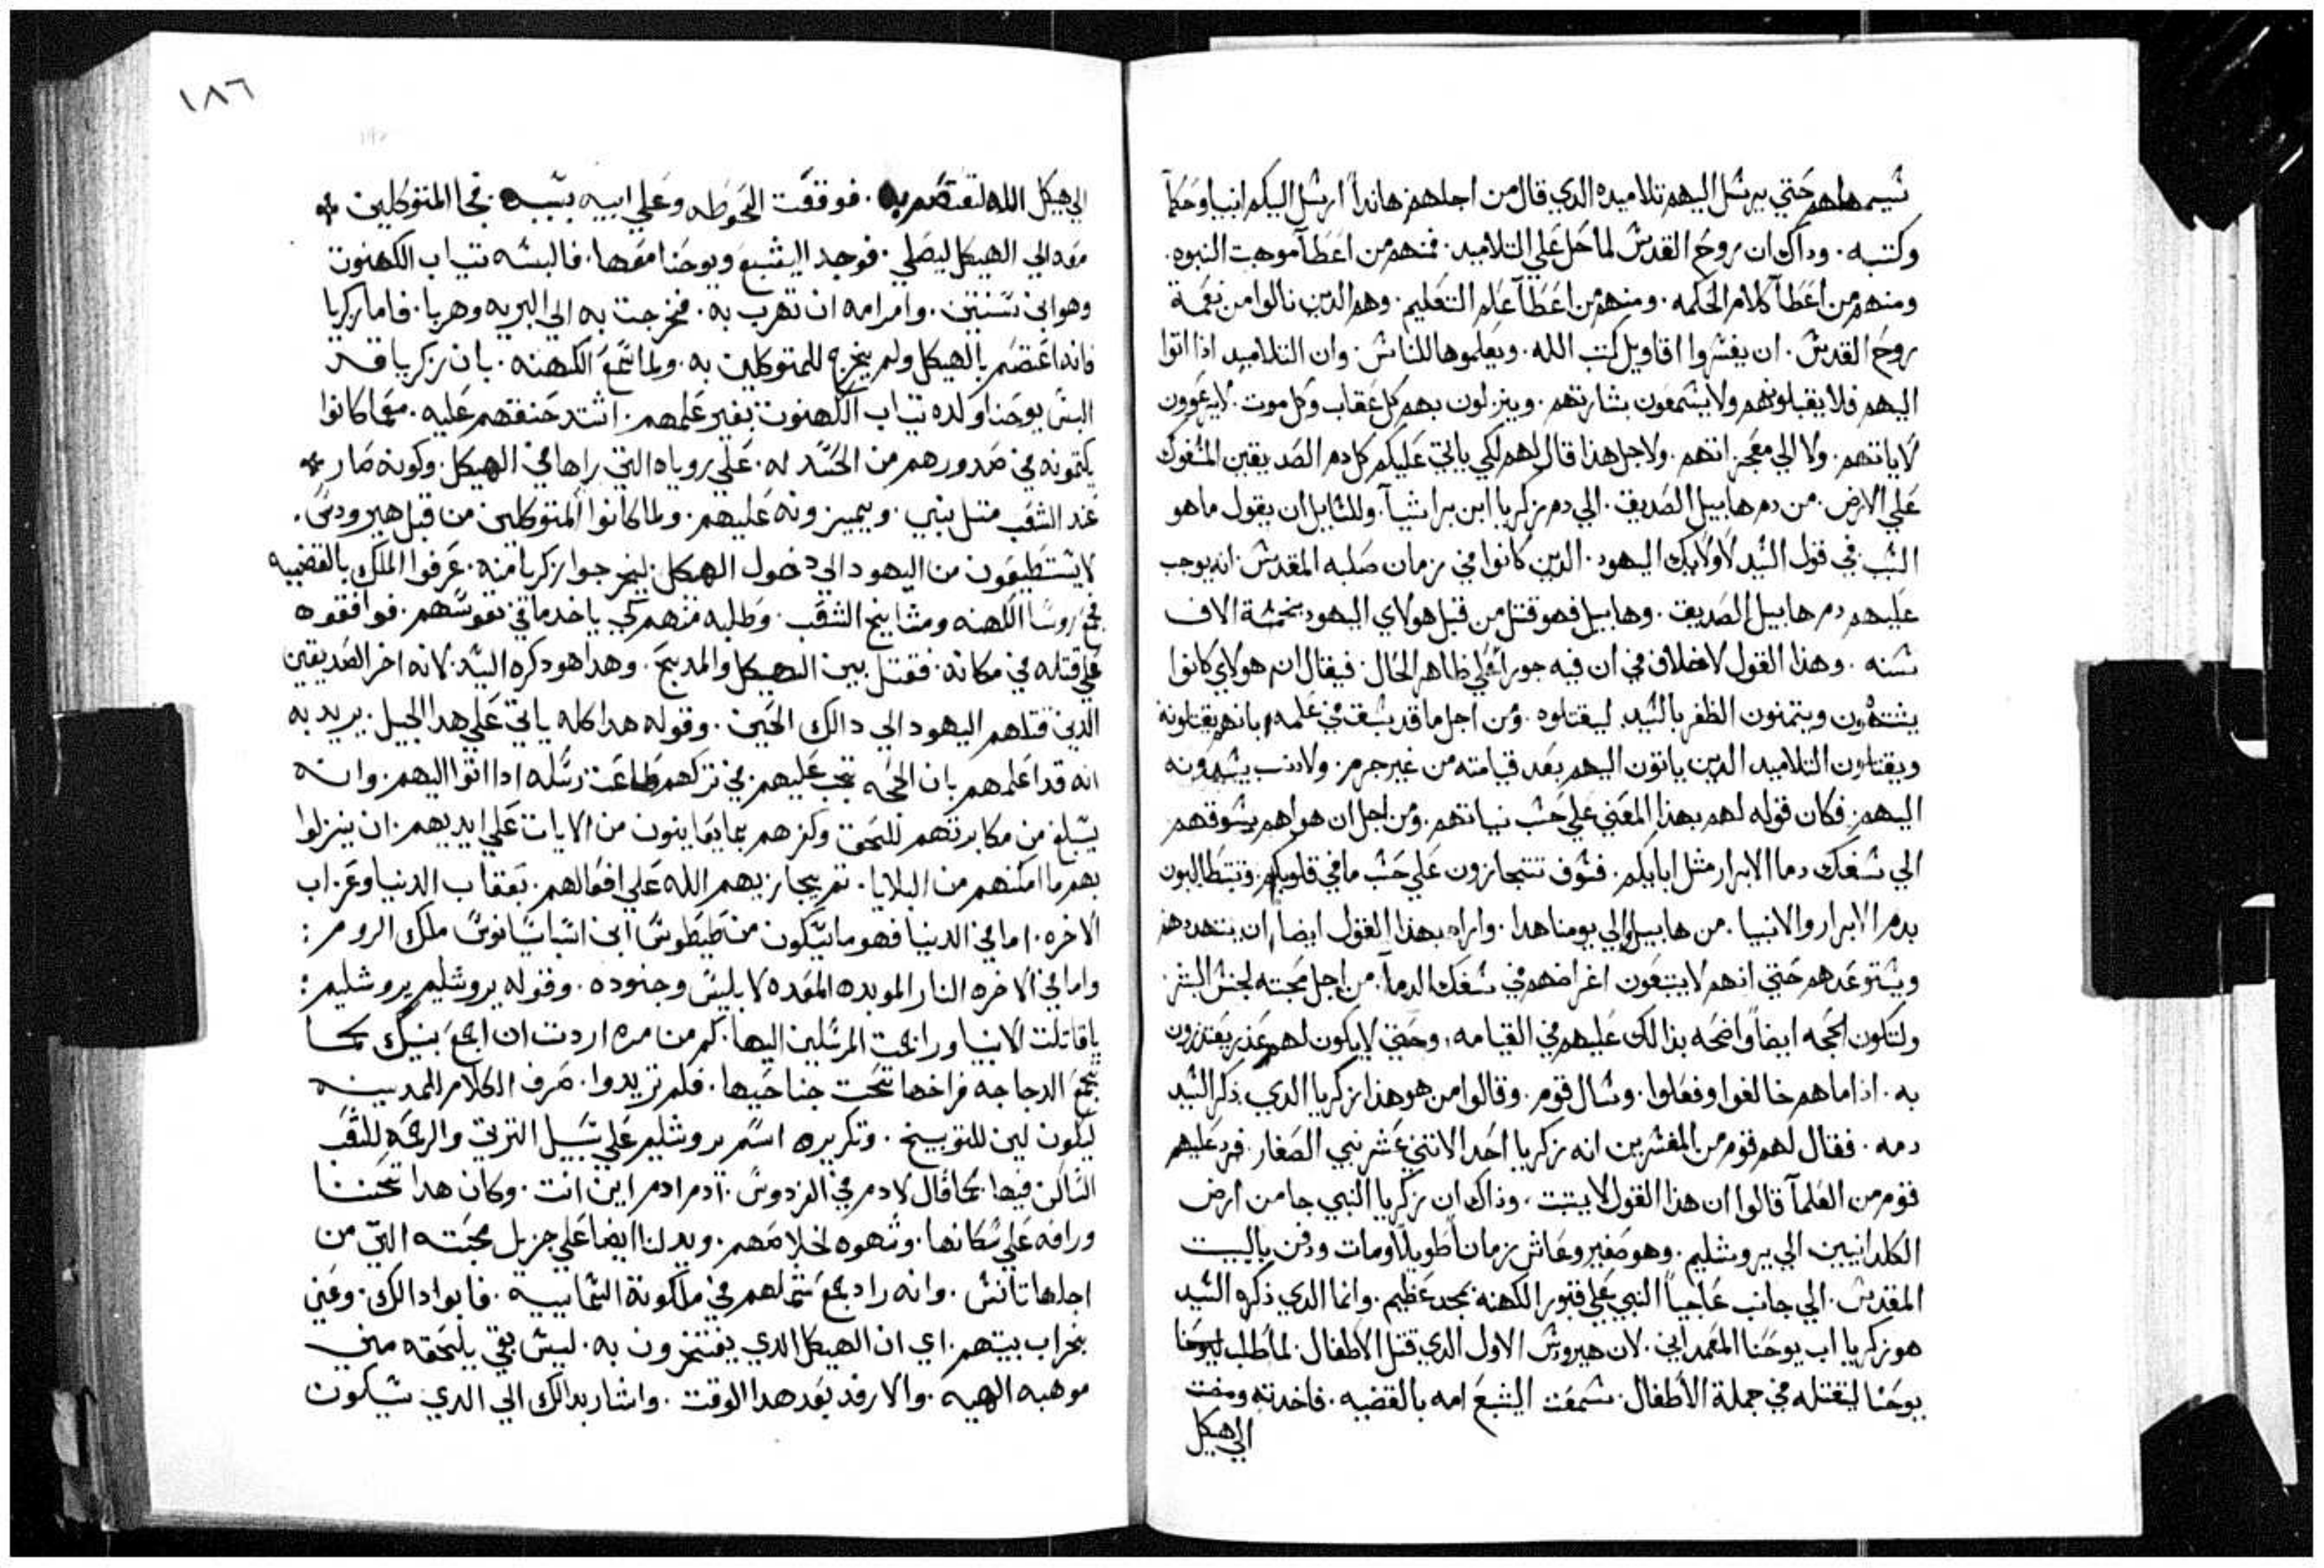 شيمهاهم حتي يرشل اليهم تلاميده الدي قال من اجلهم هاندا ارشل اليكم انبيا وحكمآ
وكتبه . وداك ان روح القدش لما حل علي التلاميد . فمنهم من اعطآ موهبت النبوه .
ومنهم من اعطآ كلام الحكمه . ومنهم من اعطآ علم التعليم . وهم الدين نالوا من نعمة
روح القدش . ان يفشروا اقاويل كتب الله . ويعلموها للناش . وان التلاميد اذا اتوا
اليهم فلا يقبلونهم ولا يشمعون بشارتهم . وينزلون بهم كل عقاب وكل موت . لا يرعوون
لاياتهم . ولا الي معجزاتهم . ولاجل هذا قال لهم لكي ياتي عليكم كل دم الصديقين المشفوك
علي الارض . من دم هابيل الصديق . الي دم زكريا ابن براشيآ . وللشايل ان يقول ما هو
الشبب في قول الشيد لاولايك اليهود . الدين كانوا في زمان صلبه المقدش . انه يوجب
عليهم دم هابيل الصديق . وهابيل فهو قتل من قبل هولاي اليهود بخمشة الاف
شنه . وهذا القول لا خلاف في ان فيه جورا علي ظاهر الحال . فيقال ان هولاي كانوا
يشتهون ويتمنون الظفر بالشيد ليقتلوه . ومن اجل ما قد شبق في علمه بانهم يقتلونه
ويقتلون التلاميد الدين ياتون اليهم بعد قيامته من غير جرم . ولا دنب يشدونه
اليهم . فكان قوله لهم بهذا المعني علي حشب نياتهم . ومن اجل ان هواهم يشوقهم
الي شفك دما الابرار مثل ابايكم . فشوف تتجازون علي حشب ما في قلوبكم . وتتطالبون
بدم الابرار والانبيا . من هابيل والي يومنا هدا . واراد بهذا القول ايضا ان يتهددهم
ويشتوعدهم حتي انهم لا يتبعون اغراضهم في شفك الدمآ . من اجل محبته لجنش البشر .
ولتكون الحجه ايضا واضحه بذالك عليهم في القيامه . وحتي لا يكون لهم عذر يعتذرون
به . اذا ما هم خالفوا وفعلوا . وشال قوم . وقالوا من هو هذا زكريا الدي ذكر الشيد
دمه . فقال لهم قوم من المفشرين انه زكريا احد الاتني عشر نبي الصغار . فرد عليهم
قوم من العلمآ قالوا ان هذا القول لا يتبت . وذاك ان زكريا النبي جا من ارض
الكلدانيين الي يروشليم . وهو صغير وعاش زمانا طويلا ومات ودفن بالبيت
المقدش . الي جانب عاجيآ النبي علي قبور الكهنه بمجد عظيم . وانما الدي ذكره الشيد
هو زكريا اب يوحنا المعمداني . لان هيرودش الاول الدي قتل الاطفال . لما طلب ليوحنا
يوحنا ليقتله في جملة الاطفال . شمعت اليشبع امه بالقضيه . فاخدته ومضت
الي هيكل
١٨٦
الي هيكل الله لتعتصم به . فوقفت الحوطه وعلي ابيه بسببه . فجا المتوكلين
معه الي الهيكل ليصلي . فوجد اليشبع ويوحنا معها . فالبسه تياب الكهنوت
وهو ابن سنتين . وامر امه ان تهرب به . فخرجت به الي البريه وهربا . فاما زكريا
فانه اعتصم بالهيكل ولم يخرج للمتوكلين به . ولما سمع الكهنه . بان زكريا قد
البس يوحنا ولده تياب الكهنوت بغير علمهم . اشتد حنقهم عليه . معما كانوا
يكتمونه في صدورهم من الحسد له . علي روياه التي راها في الهيكل . وكونه صار
عند الشعب متل نبي . ويميزونه عليهم . ولما كانوا المتوكلين من قبل هيرودس .
لا يستطيعون من اليهود الي دخول الهيكل ليخرجوا زكريا منه . عرفوا الملك بالقضيه
فجمع روسا الكهنه ومشايخ الشعب . وطلبه منهم لكي ياخد ما في نفوسهم . فوافقوه
علي قتله في مكانه . فقتل بين الهيكل والمدبح . وهدا هو دكره السيد . لانه اخر الصديقين
الدين قتلهم اليهود الي دالك الحين . وقوله هدا كله ياتي علي هدا الجيل . يريد به
انه قد اعلمهم بان الحجه تجب عليهم في تركهم طاعت رسله ادا اتوا اليهم . وانه
يبلغ من مكابرتهم للحق وكفرهم بما يعاينون من الايات علي ايديهم . ان ينزلوا
بهم ما امكنهم من البلايا . تم يجازيهم الله علي افعالهم . بعقاب الدنيا وعذاب
الاخره . اما في الدنيا فهو ما سيكون من طيطوس ابن اسباسيانوس ملك الروم :
واما في الاخره النار الموبده المعده لابليس وجنوده . وقوله يروشليم يروشليم :
يا قاتلت الانبيا وراجمت المرسلين اليها . كم من مره اردت ان اجمع بنيك كما
تجمع الدجاجه فراخها تحت جناحيها . فلم تريدوا . صرف الكلام للمدينه
ليكون لين للتوبيخ . وتكريره اسم يروشليم علي سبيل الترتي والرحمه للشعب
الساكن فيها . كما قال لادم في الفردوس . ادم ادم اين انت . وكان هدا تحننا
ورافه علي سكانها . وشهوه لخلاصهم . ويدلنا ايضا علي جزيل محبته التي من
اجلها تانس . وانه راد جمع شملهم في ملكوته السماييه . فابوا دالك . وعني
بخراب بيتهم . اي ان الهيكل الدي يفتخرون به . ليس بقي يلحقه مني
موهبه الهيه . والا رفد بعد هدا الوقت . واشار بدالك الي الدي سيكون